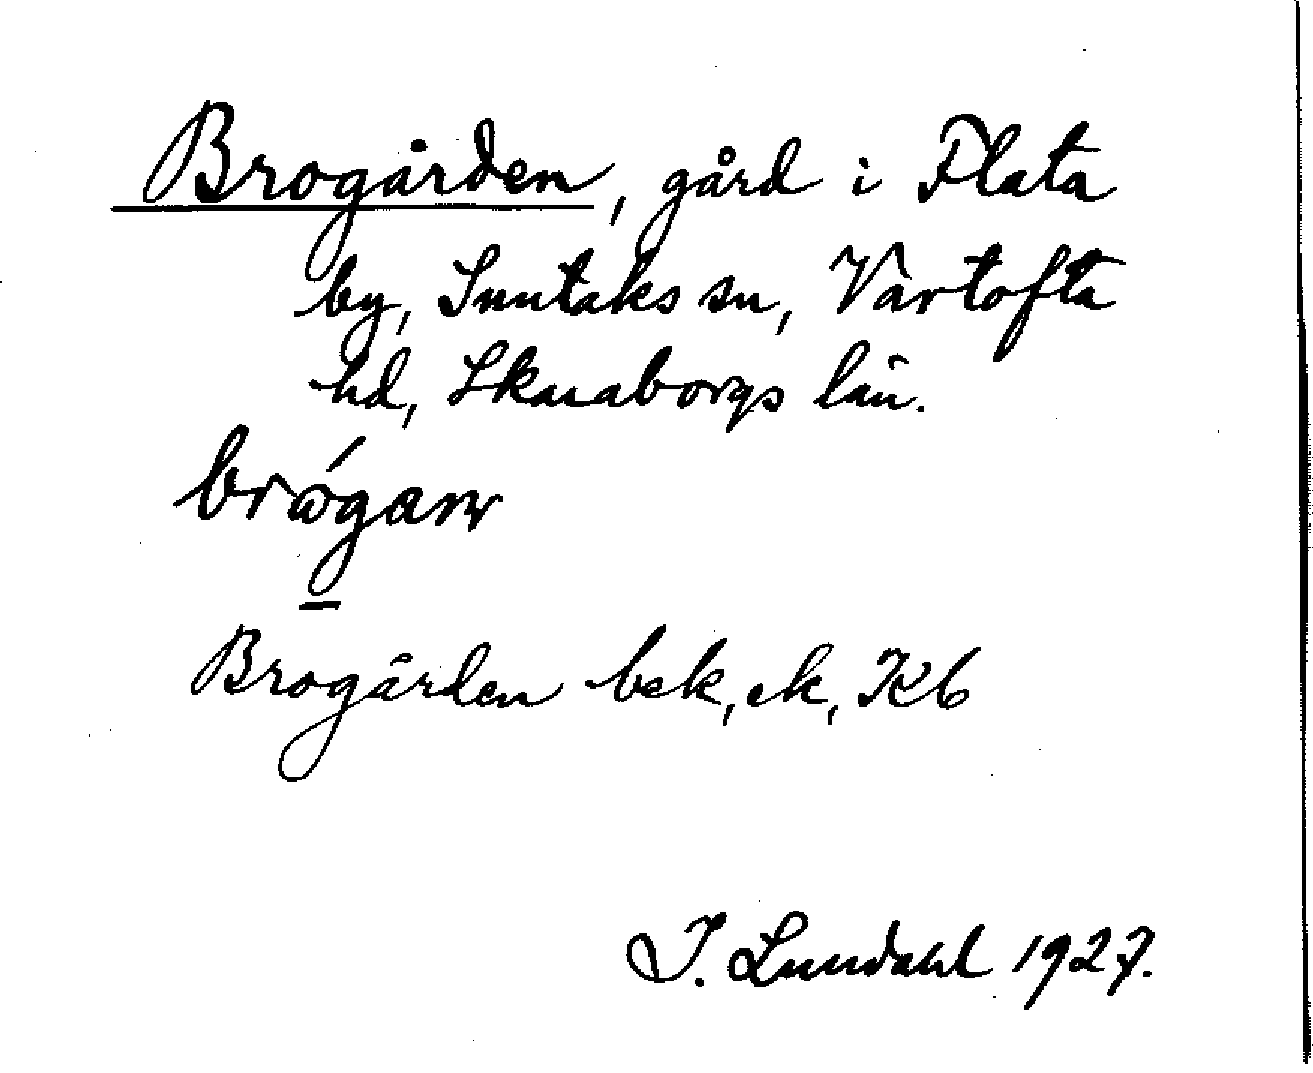 Brogården, gård i Flata
by, Suntaks sn, Vartofta
hd, Skaraborgs län.
Brogården bek, ek, Kb
I. Lundahl 1927.